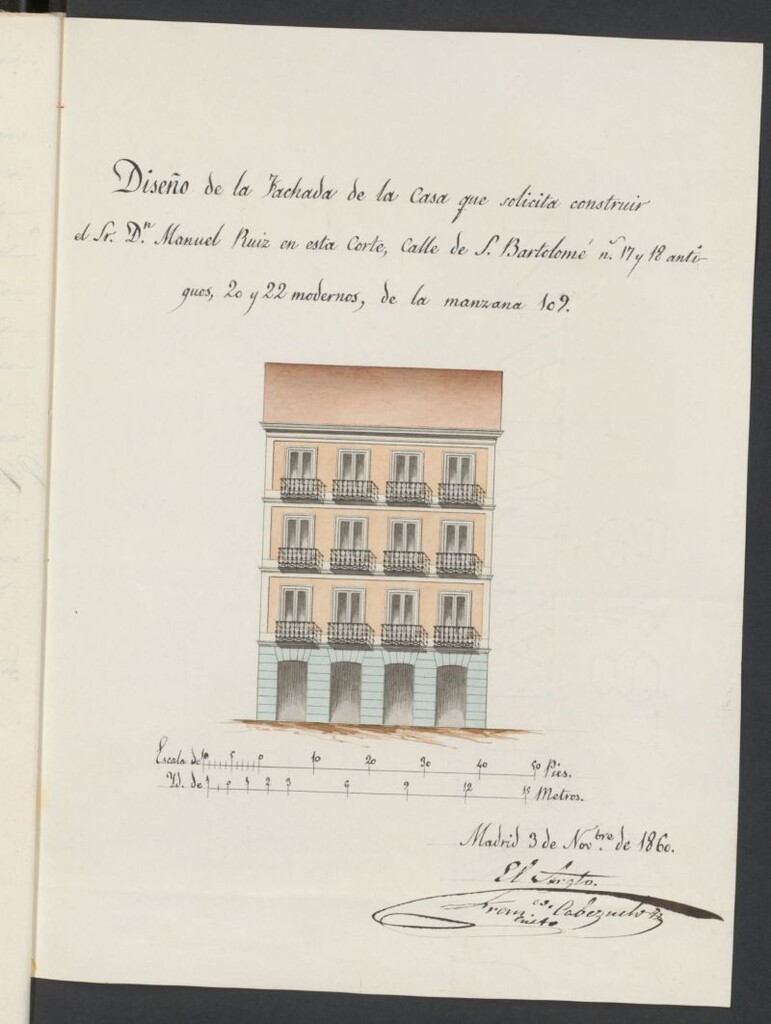 Diseño de la Fachada de la Casa que solicita construir
el Sr. D.n Manuel Ruiz en esta Corte, Calle de S. Bartolomé n.s 17 y 18 anti-
guos, 20 y 22 modernos, de la manzana 109.
Escala de 10 5 0 10 20 30 40 50 Pies.
Yd. de 1 0 1 2 3 6 9 12 15 Metros.
Madrid 3 de Nov.bre de 1860.
El
Fran.co Cabezuelo